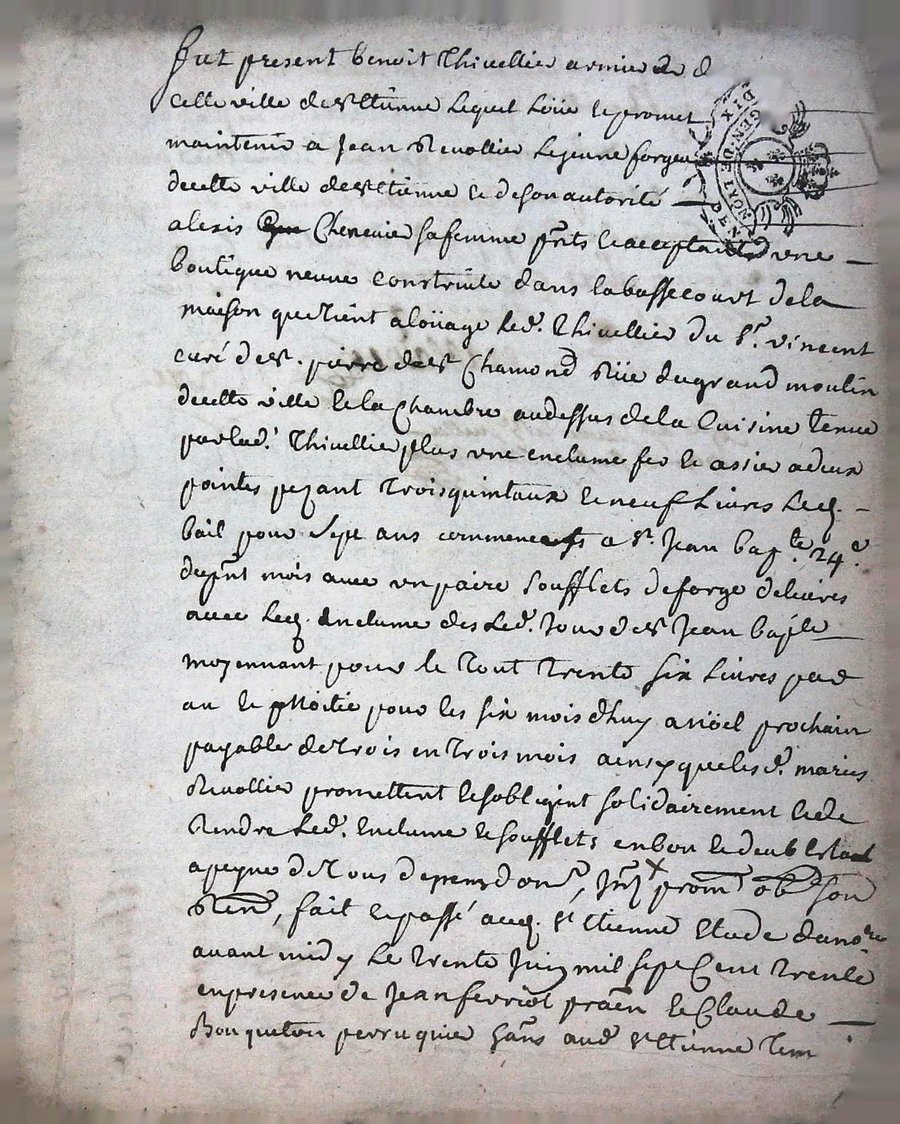 fut present benoit thivellier armurier d
cette ville de st etienne lequel loüe et promet
maintenir a Jean Revollier le jeune forgeur
de cette ville de st etienne et de son autorité
alexis Chenevier sa femme pnts et acceptants une
boutique neuve construite dans la basse court de la
maison que tient a loüage led. thivellier du sr. vincent
curé de st. pierre de st Chamond Rüe du grand moulin
de cette ville et la Chambre au dessus de la Cuisine tenue
par lad. thivellier plus une enclume fer et assier a deux
pointes pezant trois quintaux et neuf Livres Led.
bail pour sept ans commencés a st. Jean bapte 24e
du pnt mois avec un paire soufflets de forge delivrés
avec led. Enclume des led. Jour de st Jean bapte
moyennant pour le tout trente six livres par
an et moitié pour les six mois d'huy a nöel prochain
payable de trois en trois mois ainsy que lesd. mariés
Revollier promettent et s'obligent solidairement et de
Rendre led. Enclume et soufflets en bon et deub estat
a peyne de tous depens dom, prom obon
Renon, fait et passé aud. st Etienne Etude du nore
avant midy Le trente Juin mil sept Cent trente
en presence de Jean ferriol pratn et Claude
Bouqueton perruquier hans aud. st Etienne tem
GEN. DE LYON
DIX DEN